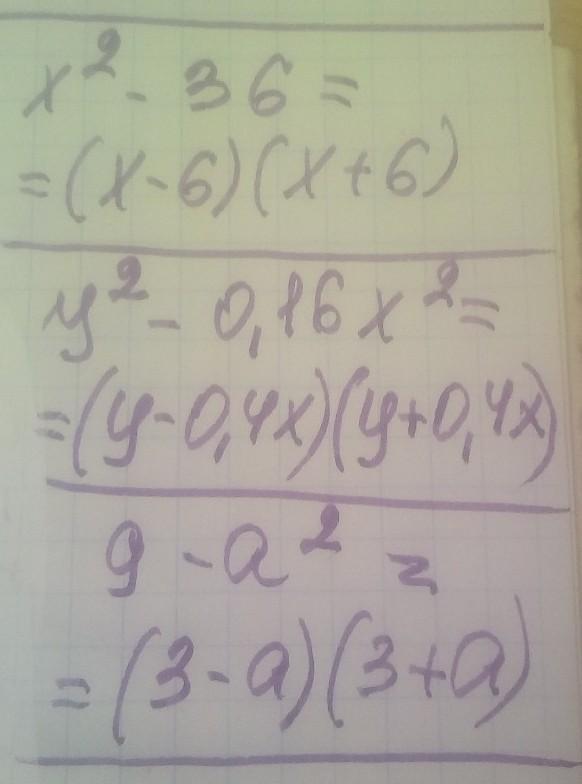 x² - 36 =
= (x - 6)(x + 6)
y² - 0,16x² =
= (y - 0,4x)(y + 0,4x)
9 - a² =
= (3 - a)(3 + a)